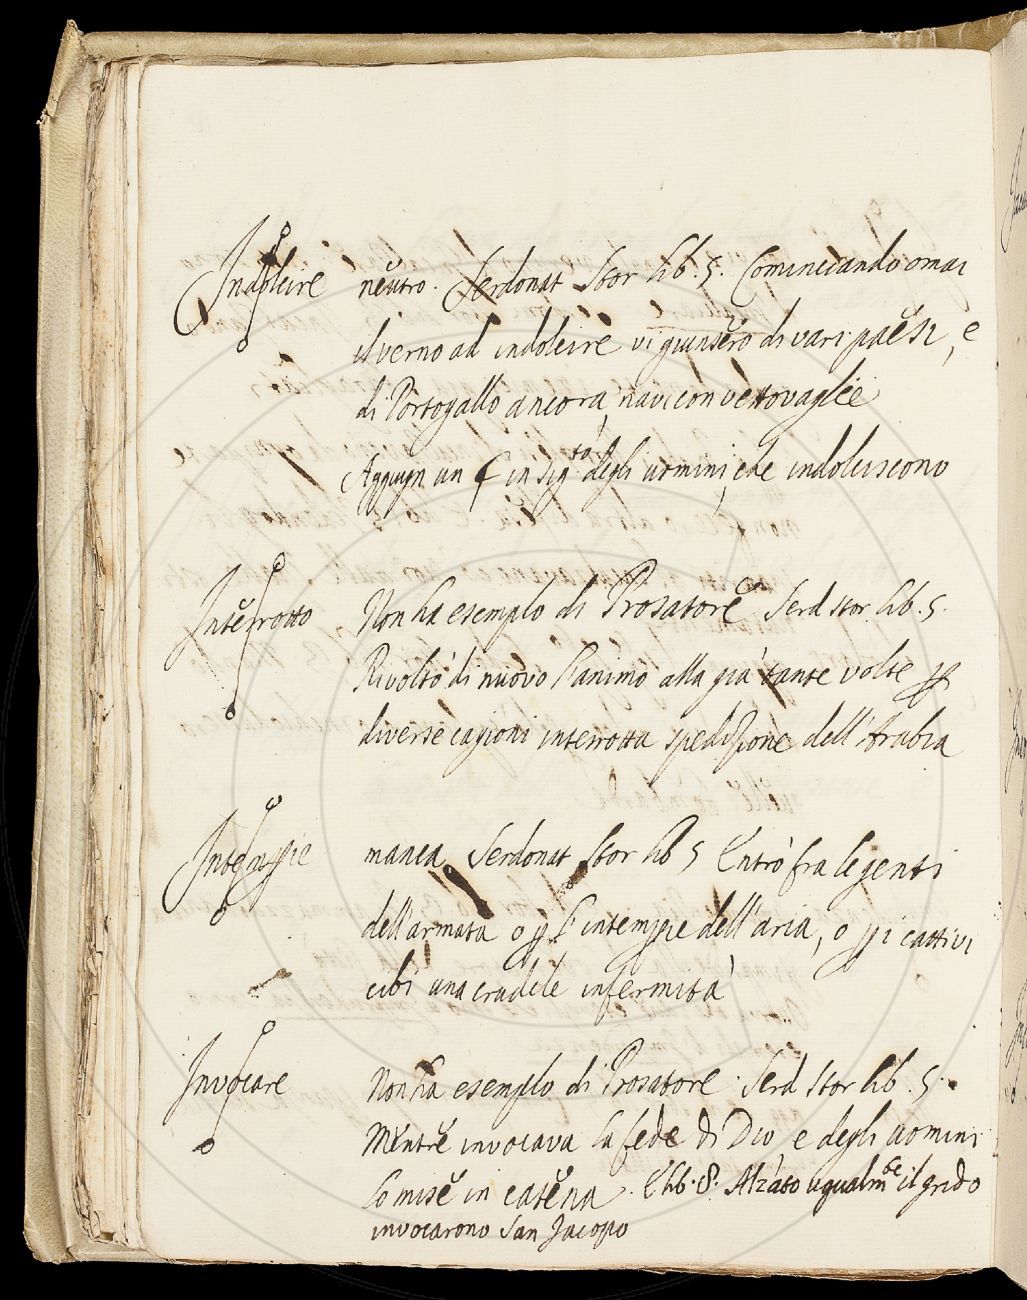 Indolcire neutro. Serdonat Stor lib. 5. Cominciando omai
il verno ad indolcire vi giunsero di vari paesi, e
di Portogallo ancora, navi con vettovaglie
Aggiugn un § in sig.to degli uomini, che indolciscono
Interrotto Non ha esemplo di Prosatore. Serd stor. lib. 5.
Rivoltò di nuovo l'animo alla già tante volte p
diverse cagioni interrotta spedizione dell'Arabia
Intemperie manca Serdonat Stor lib 5 Entrò fra le genti
dell'armata o p l'intemperie dell'aria, o p i cattivi
cibi una crudele infermità
Invocare Non ha esemplo di Prosatore. Serd Stor lib. 5.
Mentre invocava la fede di Dio e degli uomini
lo mise in catena. E lib. 8. Alzato ugualm.te il grido
invocarono San Jacopo